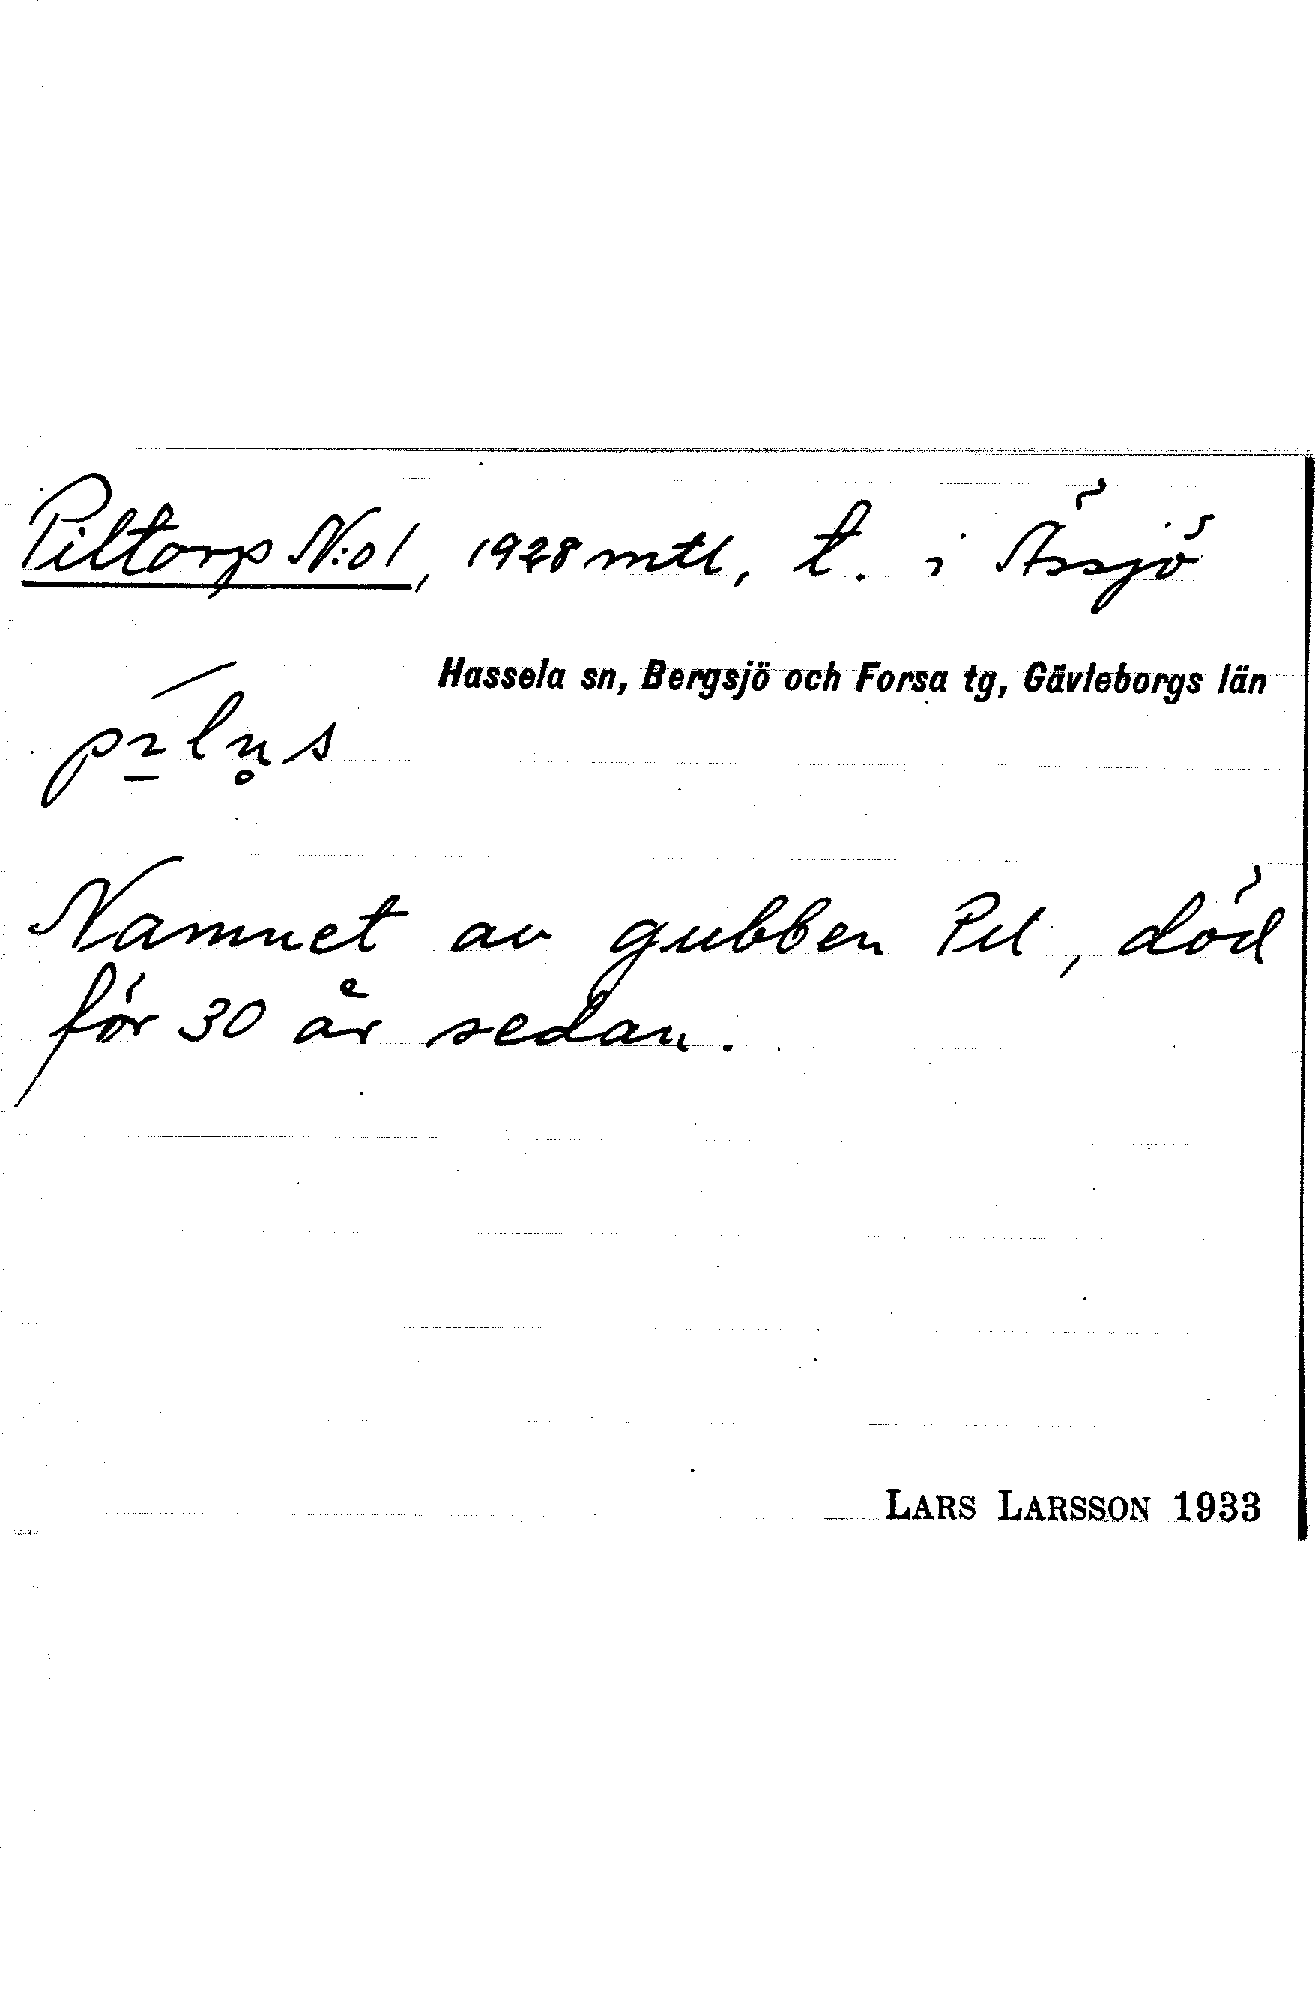 Piltorp N:o 1, 1928 mtl, t. i Ässjö
Hassela sn, Bergsjö och Forsa tg, Gävleborgs län
Namnet av gubben Pil, död
för 30 år sedan.
LARS LARSSON 1933